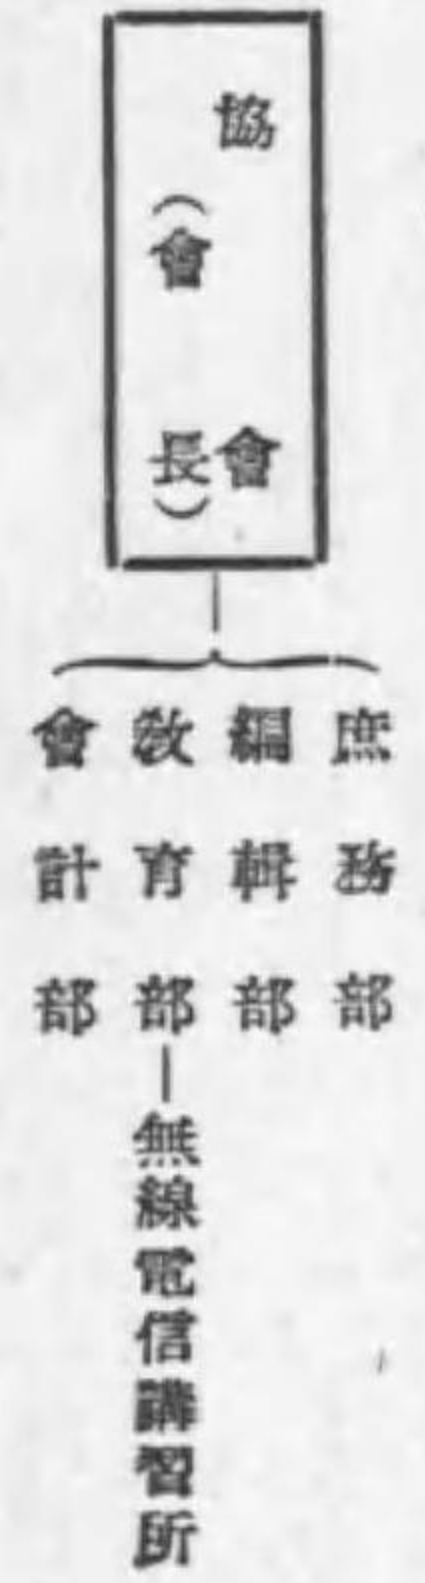 協會
（會長）
庶務部
編輯部
敎育部―無線電信講習所
會計部